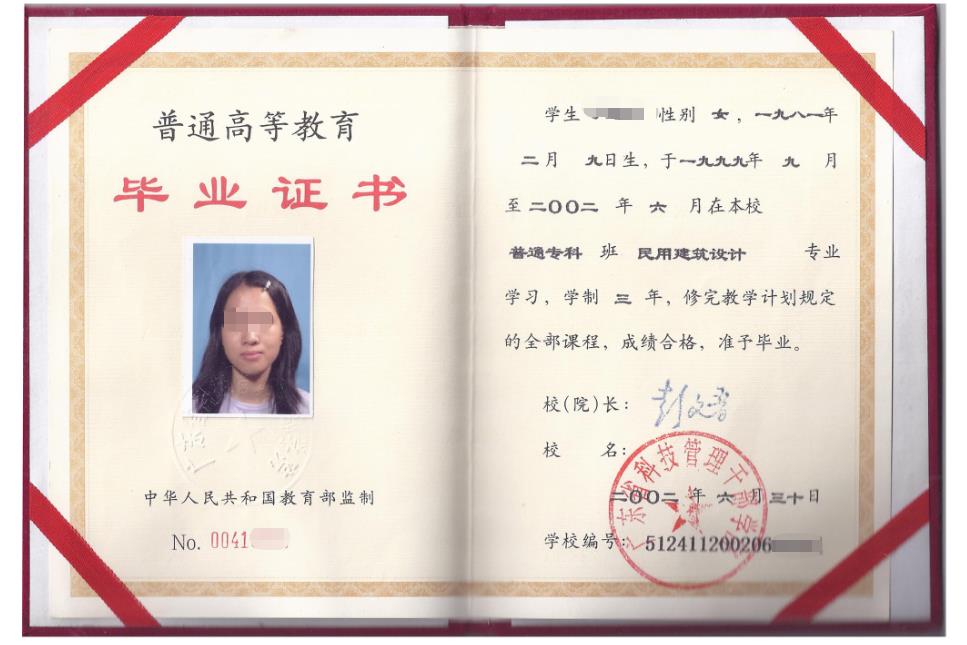 普通高等教育
毕业证书
中华人民共和国教育部监制
No. 0041
学生 性别 女，一九八一年
二月 九日生，于一九九九年 九 月
至 二〇〇二 年 六 月在本校
普通专科 班 民用建筑设计 专业
学习，学制 三 年，修完教学计划规定
的全部课程，成绩合格，准予毕业。
校(院)长：
校 名：
广东省科技管理干部学院
二〇〇二 年 六 月三十日
学校编号：512411200206